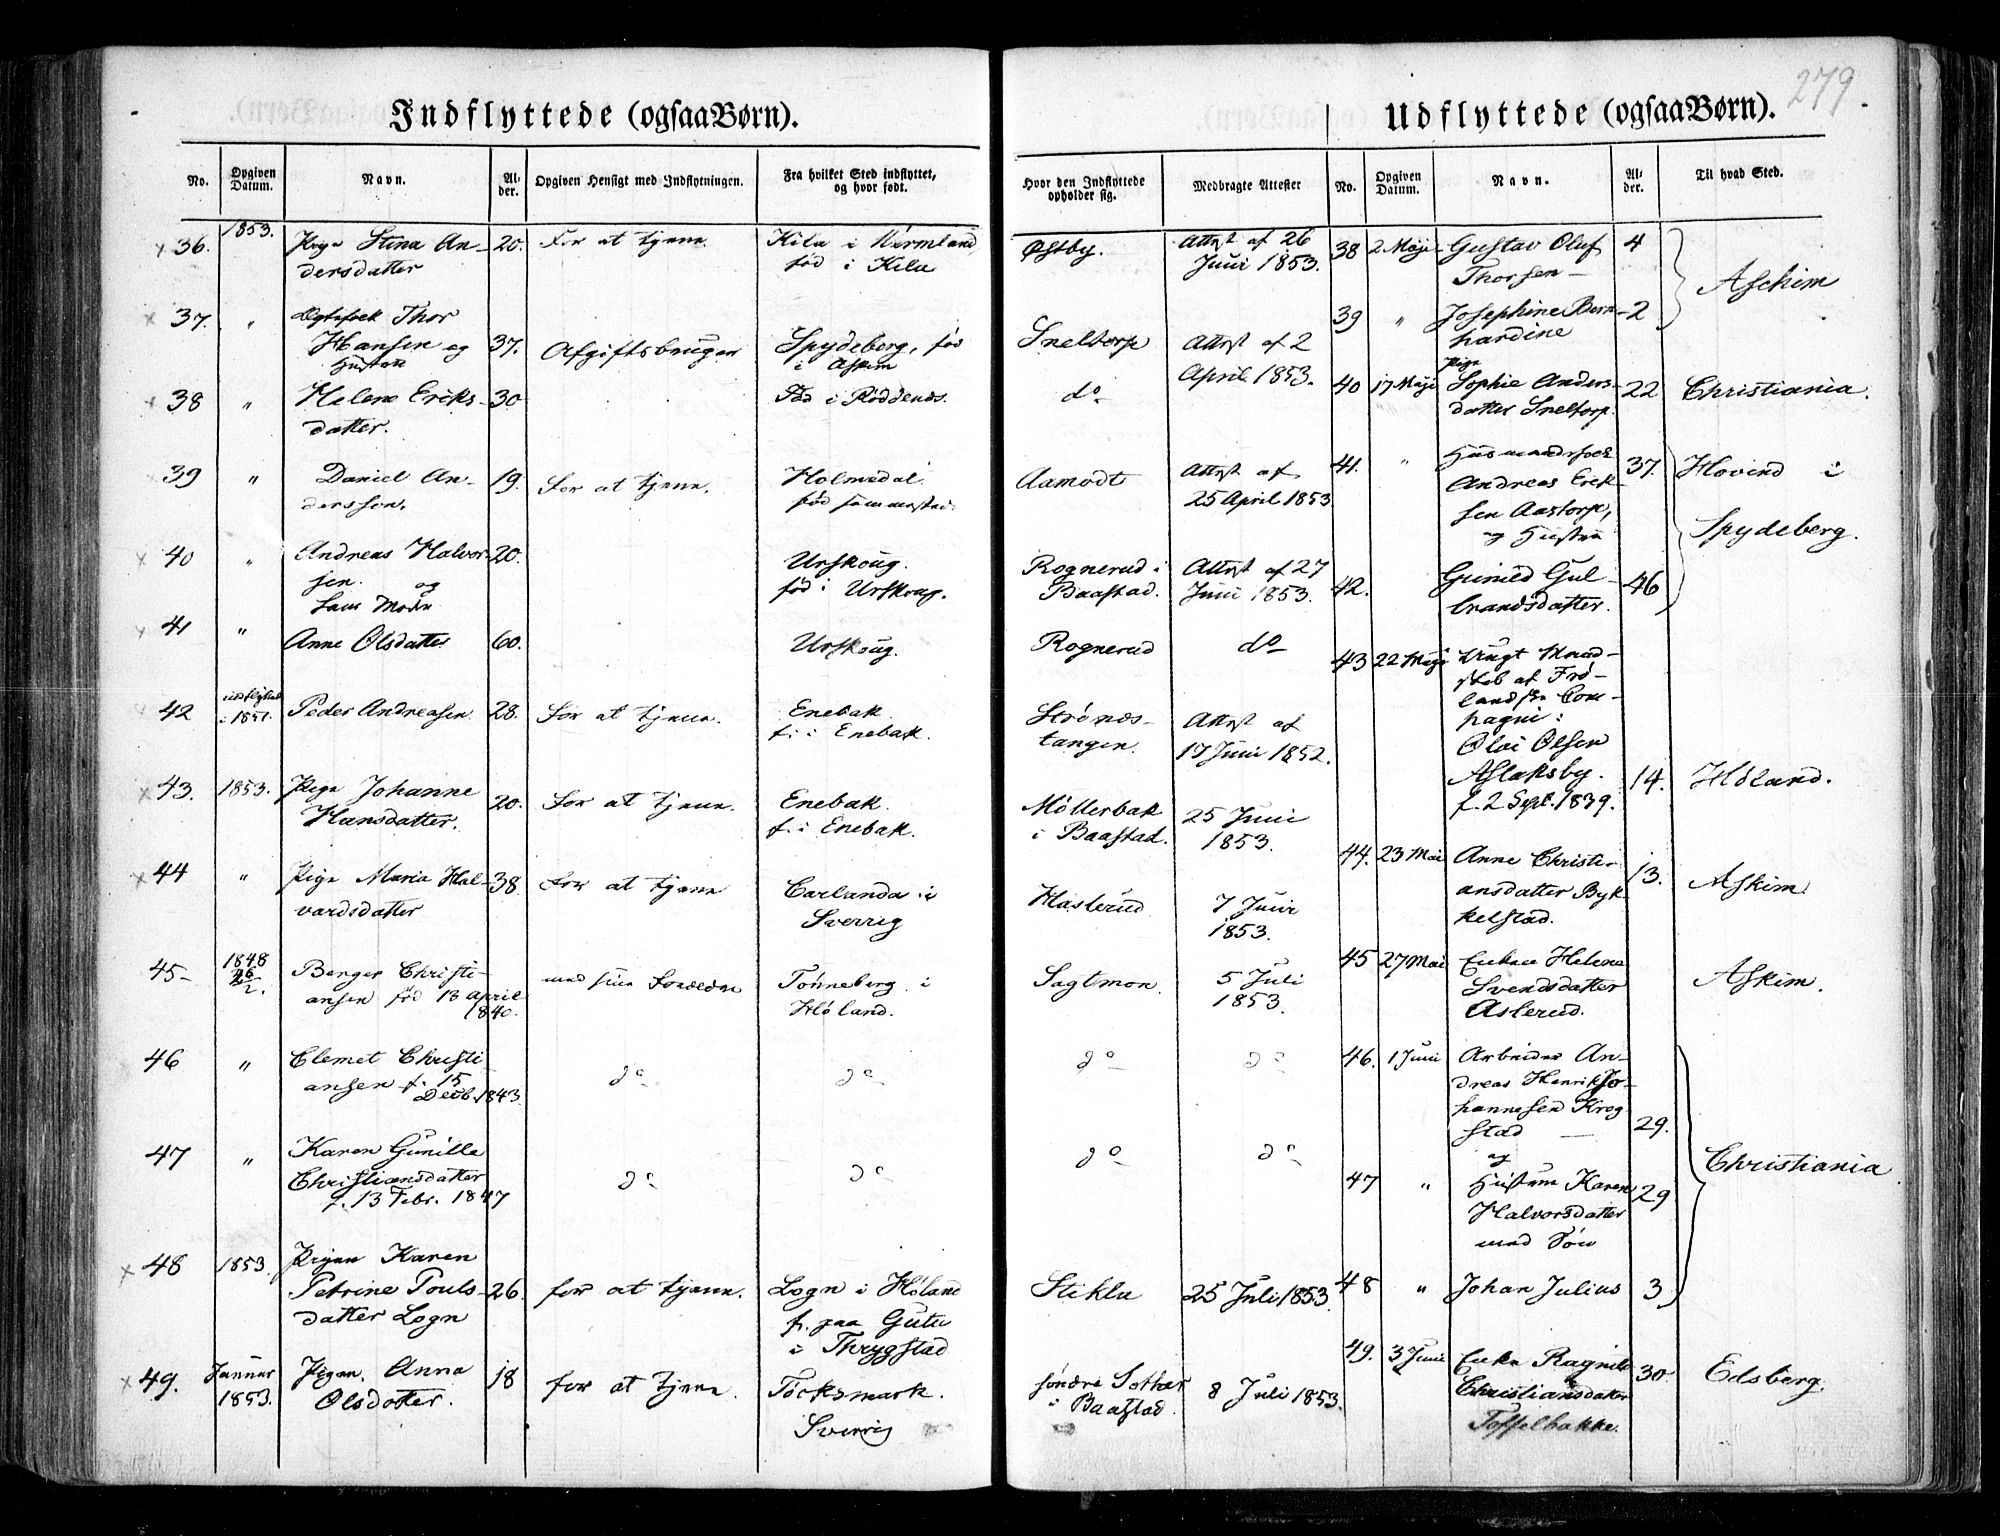 279.
Indflyttede (ogsaa Børn).
No.
Opgiven Datum.
Navn.
Alder.
Opgiven Hensigt med Indflytningen.
Fra hvilket Sted indflyttet, og hvor født.
Hvor den Indflyttede opholder sig.
Medbragte Attester
36. 1853. Pige Stina An- 20. For at tjene. Kila i Wermland, Østby. Attest af 26
dersdatter født i Kila Juni 1853.
37. " Ægtefolk Thor
Hansen og 37. Afgiftsbruger Spydeberg, fød Sneltorp Attest af 2
Hustru i Askim April 1853.
38 " Helene Eriks- 30 Fød i Røddenes. do
datter.
39 " Daniel An- 19. For at tjene. Holmedal. Aamodt Attest af
dersson. 25 April 1853
40 " Andreas Halvor- 20. Urskoug. Rognerud i Attest af 27
sen. og fød i Urskoug. Baastad. Juni 1853.
hans Moder
41 " Anne Olsdatter 60. Urskoug. Rognerud do
42 indflyttet Peder Andreasen 28. For at tjene. Enebak Strønds- Attest af
i 1851. f. i Enebak. tangen. 17 Juni 1852.
43. 1853. Pige Johanne 20. For at tjene. Enebak. Møllerbak 25 Juni
Hansdatter. f. i Enebak. i Baastad. 1853.
44 " Pige Maria Hal- 38. For at tjene Carlanda i Haslerud 7 Juni
vardsdatter Sverrig 1853.
45 1848 Berger Christi- med sine Forældre Tønneberg i Sagtmon. 5 Juli
26/2. ansen fød 13 April Høland. 1853.
1840.
46 " Clemet Christi- do do do do
ansen f. 15
Decb. 1843
47 " Karen Gunille
Christiansdatter do do do do
f. 13 Febr. 1847
48 1853. Pigen Karen
Petrine Pouls- 26. for at tjene. Logn i Høland Stikla 25 Juli 1853.
datter Logn f. paa
i Thrygstad
49. Januar Pigen Anna 18 for at tjene. Töcksmark. søndre Sother 8 Juli 1853.
1853. Olsdatter. Sverrig i Baastad.
Udflyttede (ogsaa Børn).
No.
Opgiven Datum.
Navn.
Alder.
Til hvad Sted.
38 2 Maji Gustav Oluf 4
Thorsen Aschim
39 " Josephine Bern- 2
hardine
40 17 Maji Pige
Sophie Anders- 22 Christiania.
datter Sneltorp.
41. " Husmandsfolk 37. Hovind i
Andreas Erik-
sen Aastorp, Spydeberg.
og Hustru
42. Gunild Gul- 46
brandsdatter.
43 22 Maji
skab af Frø-
landske Com-
pagni:
Olai Olsen
Aslaksby. 14. Høland.
f. 2 Sept. 1839.
44. 23 Mai Anne Christi- 13. Askim
ansdatter Byk-
kelstad.
45 27 Mai Enken Helene Askim.
Svendsdatter
Aslerud.
46. 1 Juni Arbeider An-
dreas Henrik Jo-
hannesen Krog- 29.
stad
og Christiania
47 " Hustru Karen 29
Halvorsdatter
med Søn
48 " Johan Julius 3
49. 3 Juni Enke Ragnild 30. Edsberg.
Christiansdatter
Toffelbakke.